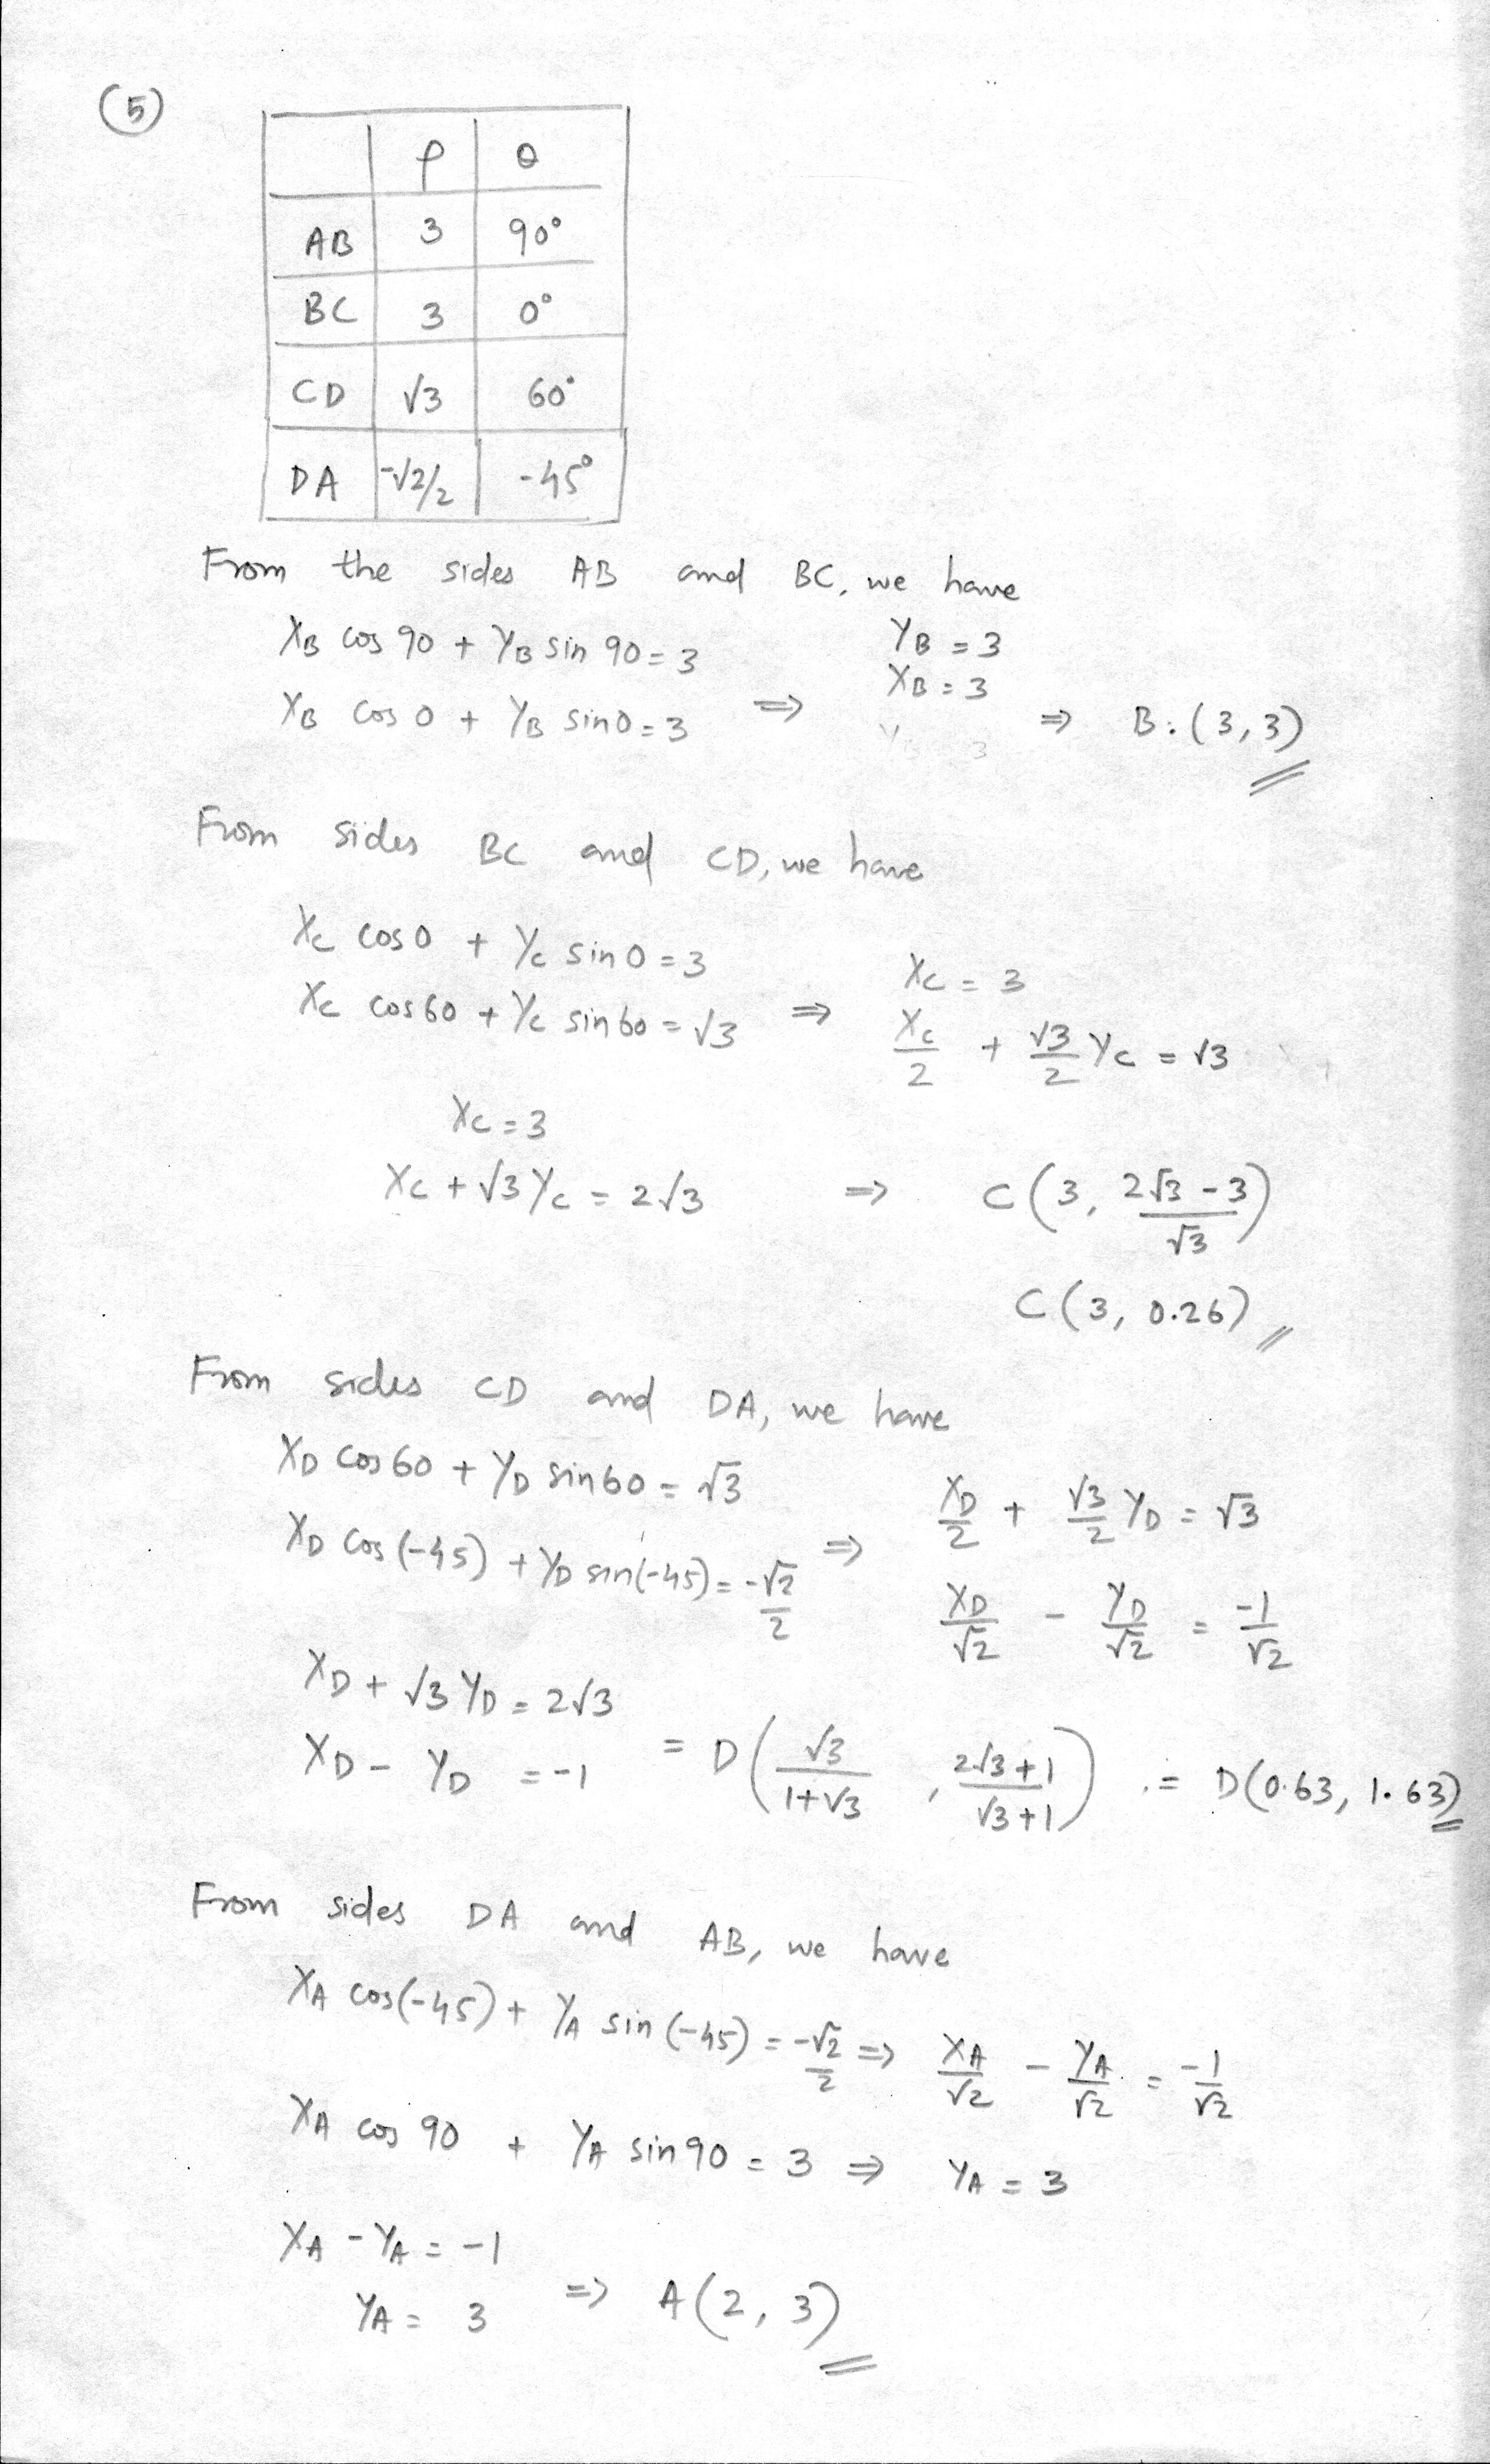 (5)
ρ θ
AB 3 90°
BC 3 0°
CD √3 60°
DA -√2/2 -45°
From the sides AB and BC, we have
XB cos 90 + YB sin 90 = 3 YB = 3
XB cos 0 + YB sin 0 = 3 ⇒ XB = 3 ⇒ B: (3,3)
From sides BC and CD, we have
Xc cos 0 + Yc sin 0 = 3 Xc = 3
Xc cos 60 + Yc sin 60 = √3 ⇒ Xc/2 + √3/2 Yc = √3
Xc = 3
Xc + √3 Yc = 2√3 ⇒ C (3, (2√3 - 3)/√3)
C (3, 0.26)
From sides CD and DA, we have
XD cos 60 + YD sin 60 = √3 XD/2 + √3/2 YD = √3
XD cos (-45) + YD sin(-45) = -√2/2 ⇒ XD/√2 - YD/√2 = -1/√2
XD + √3 YD = 2√3
XD - YD = -1 = D (√3/(1+√3), (2√3+1)/(√3+1)) .= D(0.63, 1.63)
From sides DA and AB, we have
XA cos(-45) + YA sin (-45) = -√2/2 ⇒ XA/√2 - YA/√2 = -1/√2
XA cos 90 + YA sin 90 = 3 ⇒ YA = 3
XA - YA = -1
YA = 3 ⇒ A (2, 3)